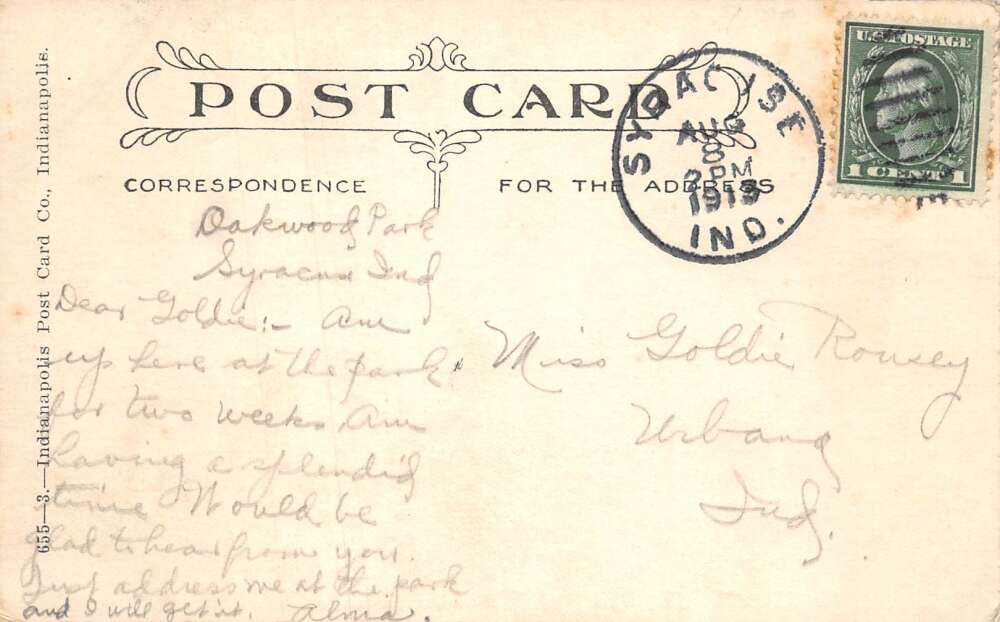 655—3.—Indianapolis Post Card Co., Indianapolis.
POST CARD
CORRESPONDENCE
FOR THE ADDRESS
SYRACUSE
AUG
8
PM
1913
IND.
U.S. POSTAGE
1 CENTS 1
Oakwood Park
Syracuse Ind
Dear Goldie:- Am
up here at the park
for two weeks Am
having a splendid
time Would be
glad to hear from you.
Just address me at the park
and I will get it. Alma.
Miss Goldie Rousey
Urbana
Ind.